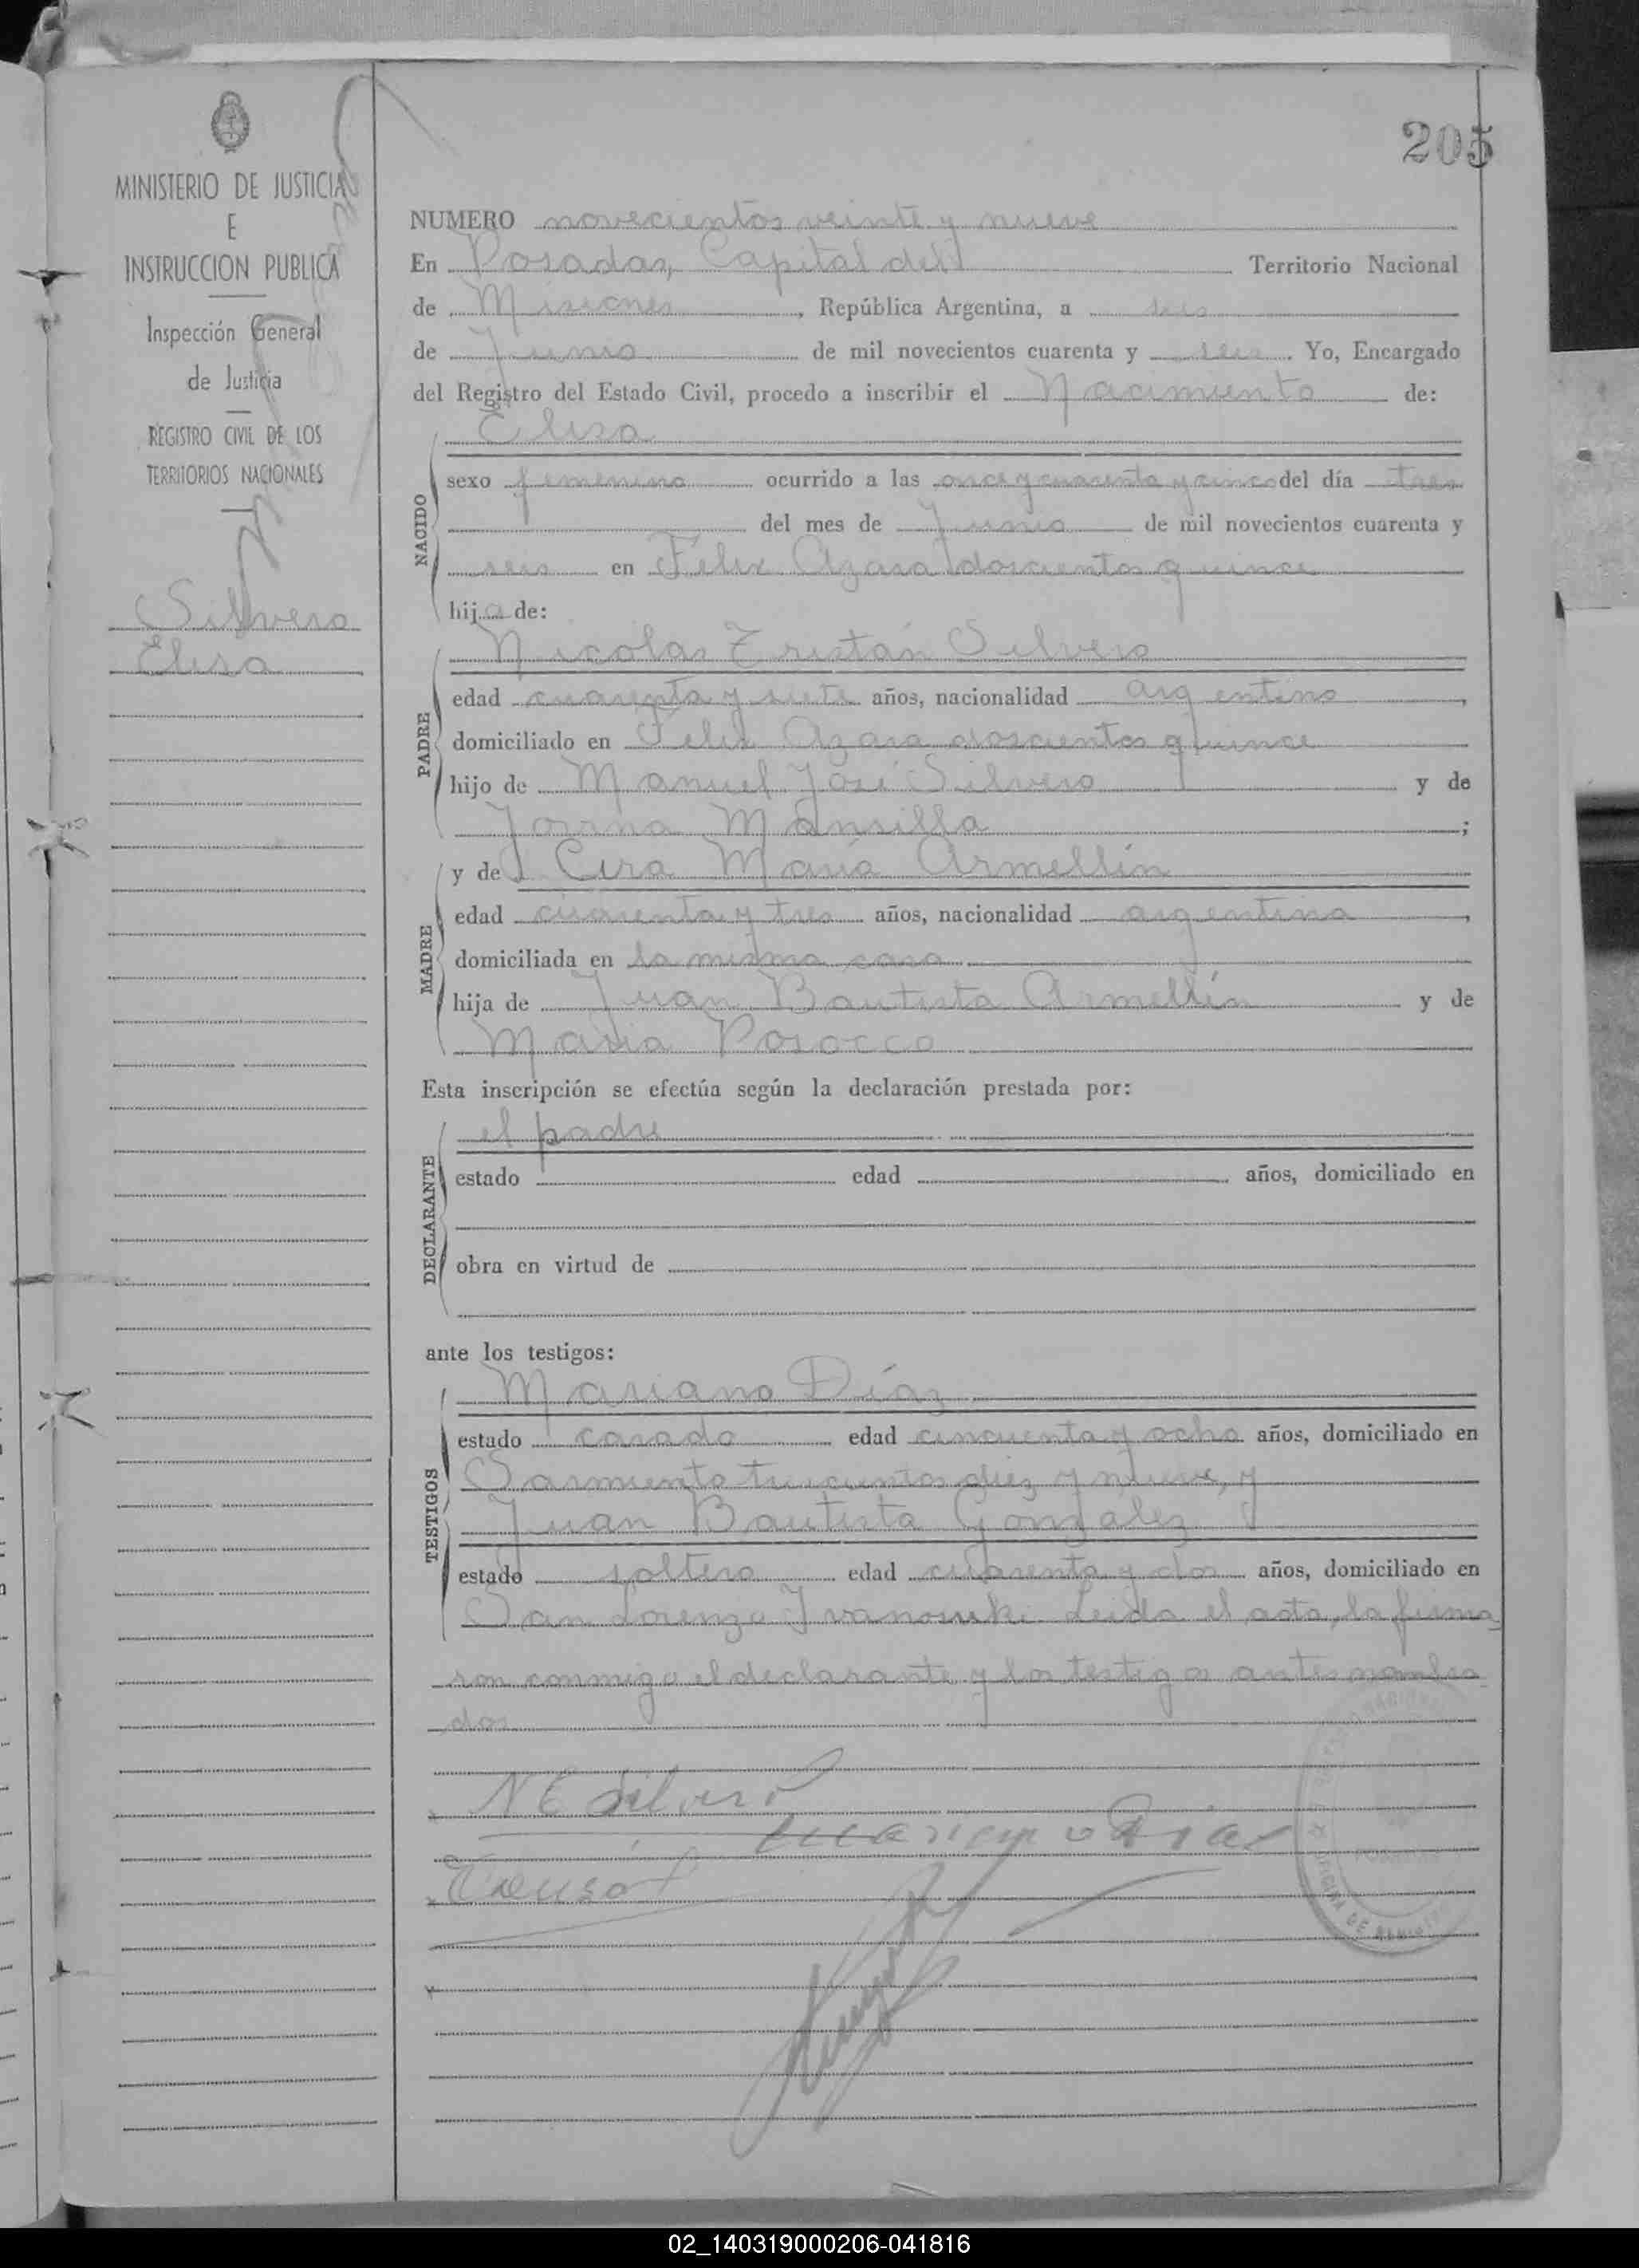 205
MINISTERIO DE JUSTICIA
E
INSTRUCCION PUBLICA
Inspección General
de Justicia
REGISTRO CIVIL DE LOS
TERRITORIOS NACIONALES
Silvero
Elisa
NUMERO novecientos veinte y nueve
En Posadas, Capital del Territorio Nacional
de Misiones, República Argentina, a seis
de Junio de mil novecientos cuarenta y seis. Yo, Encargado
del Registro del Estado Civil, procedo a inscribir el Nacimiento de:
Elisa
NACIDO
sexo femenino ocurrido a las once y cuarenta y cinco del día tres
del mes de Junio de mil novecientos cuarenta y
seis en Felix Azara doscientos quince
hija de:
Nicolas Tristán Silvero
PADRE
edad cuarenta y siete años, nacionalidad argentino,
domiciliado en Felix Azara doscientos quince
hijo de Manuel José Silvero y de
Mansilla;
y de Cira María Armellín
MADRE
edad cuarenta y tres años, nacionalidad argentina,
domiciliada en la misma casa
hija de Juan Bautista Armellín y de
Maria Posocco
Esta inscripción se efectúa según la declaración prestada por:
el padre
DECLARANTE
estado edad años, domiciliado en
obra en virtud de
ante los testigos:
Mariano Díaz
TESTIGOS
estado casado edad cincuenta y ocho años, domiciliado en
Sarmiento trescientos diez y nueve, y
Juan Bautista Gonzalez
estado soltero edad cuarenta y dos años, domiciliado en
San Lorenzo Leida el acta, la firma
ron conmigo el declarante y los testigos antes nombra
dos
N E Silvero
Mariano Diaz
02_140319000206-041816